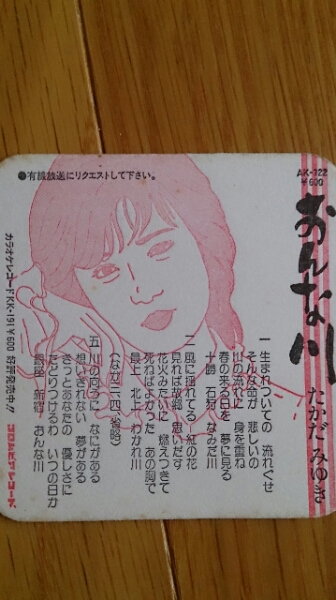 AK-722
¥600
おんな川
たかだみゆき
一 生まれついての 流れぐせ
そんな命が 悲しいの
川の流れに 身を重ね
春の来る日を 夢に見る
十勝 石狩 なみだ川
二 風に揺れてる 紅の花
見れば故郷 思いだす
花火みたいに 燃えつきて
死ねばよかった あの胸で
最上 北上 わかれ川
(なが三・四省略)
五 川の向うに なにがある
想いきれない 夢がある
きっとあなたの 優しさに
たどりつけるわ いつの日か
新宿 おんな川
●有線放送にリクエストして下さい。
カラオケレコードKK-191 ¥600 好評発売中!!
コロムビアレコード